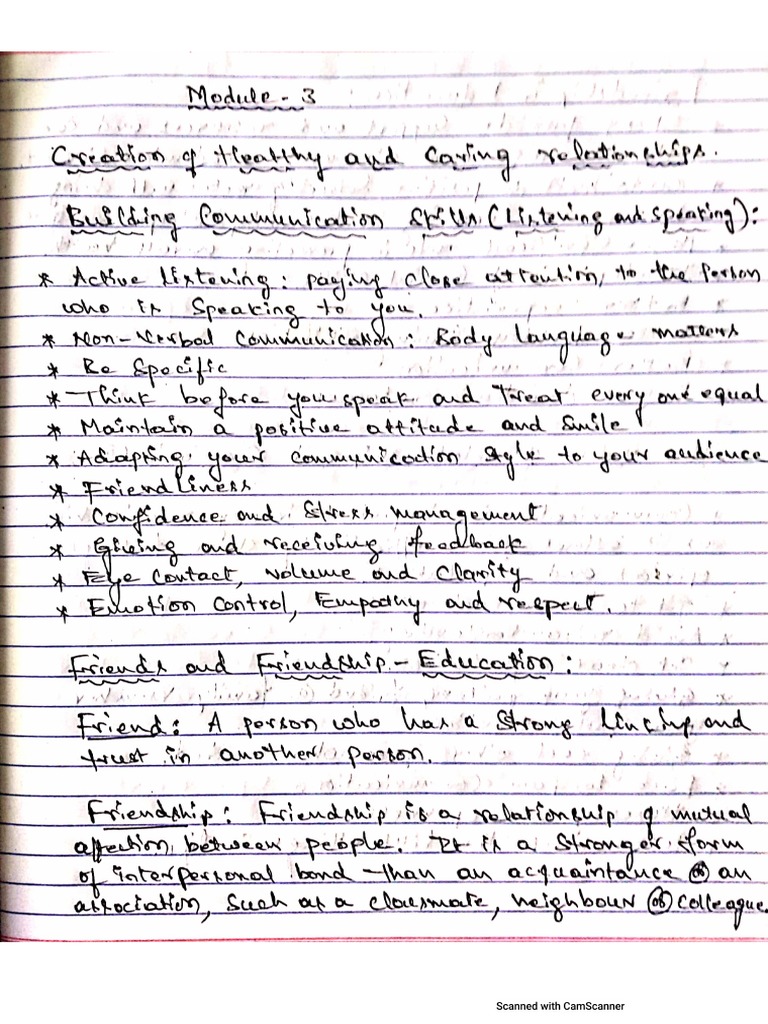 Module - 3
Creation of Healthy and Caring relationships.
Building Communication Skills (Listening and Speaking):
* Active listening: paying close attention, to the person
who is speaking to you.
* Non-Verbal Communication: Body language matters
* Be Specific
* Think before you speak and Treat every one equal
* Maintain a positive attitude and Smile
* Adapting your communication style to your audience
* Friendliness
* Confidence and Stress management
* Giving and receiving feedback
* Eye Contact, Volume and Clarity
* Emotion Control, Empathy and respect.
Friends and Friendship - Education:
Friend: A person who has a strong linking and
trust in another person.
Friendship: Friendship is a relationship of mutual
affection between people. It is a stronger form
of interpersonal bond than an acquaintance or an
association, such as a classmate, neighbour or colleague.
Scanned with CamScanner